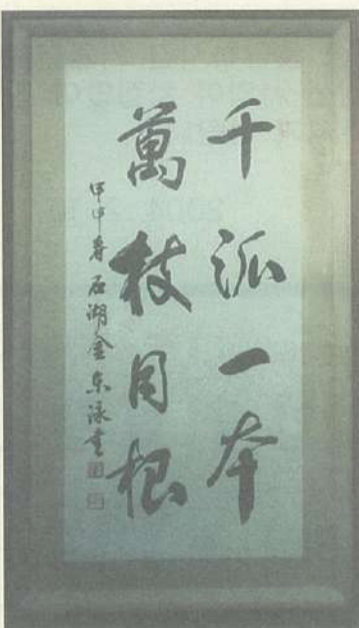 千派一本
萬枝同根
甲申春 石湖 金東泳書